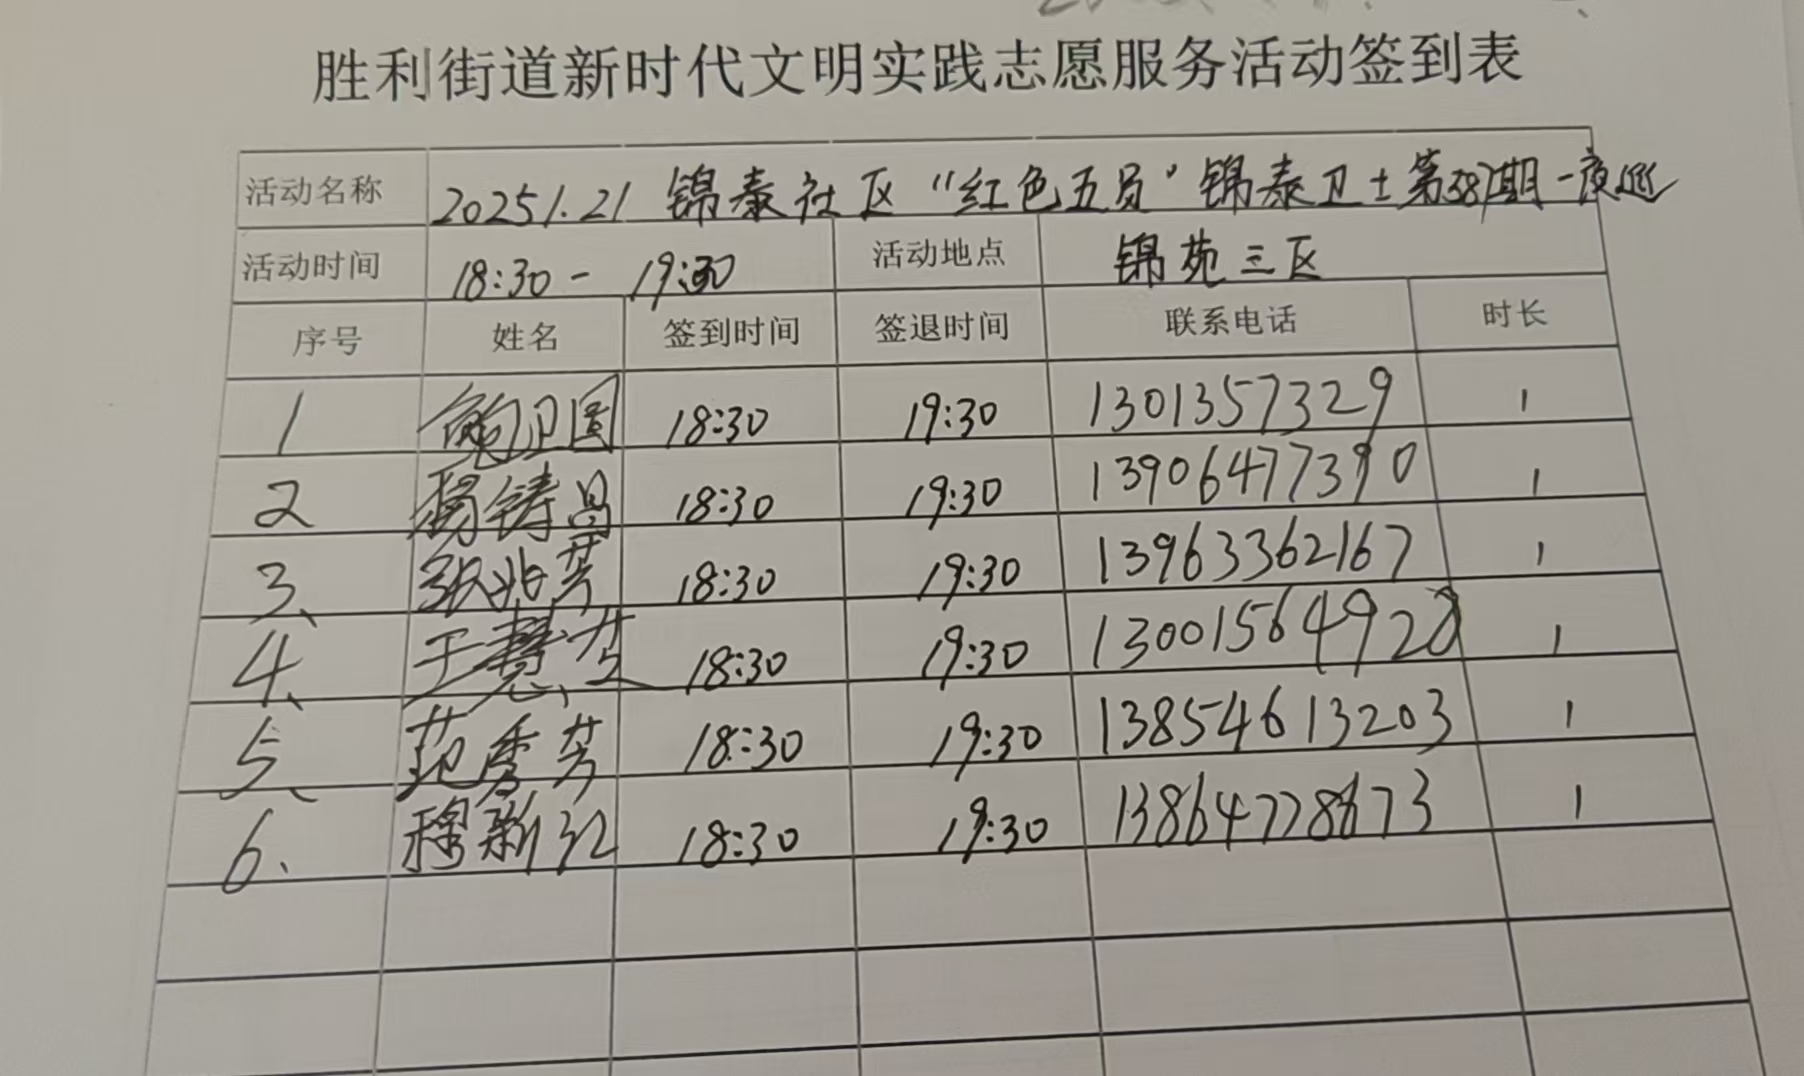 胜利街道新时代文明实践志愿服务活动签到表
活动名称 2025.1.21 锦泰社区“红色五员”锦泰卫士第387期-夜巡
活动时间 18:30- 19:30 活动地点 锦苑三区
序号 姓名 签到时间 签退时间 联系电话 时长
1 鲍卫国 18:30 19:30 1301357329 1
2 杨铸昌 18:30 19:30 13906477390 1
3、 张兆芳 18:30 19:30 13963362167 1
4、 于慧芝 18:30 19:30 13001564928 1
5、 范秀芳 18:30 19:30 13854613203 1
6、 穆新红 18:30 19:30 13864778673 1